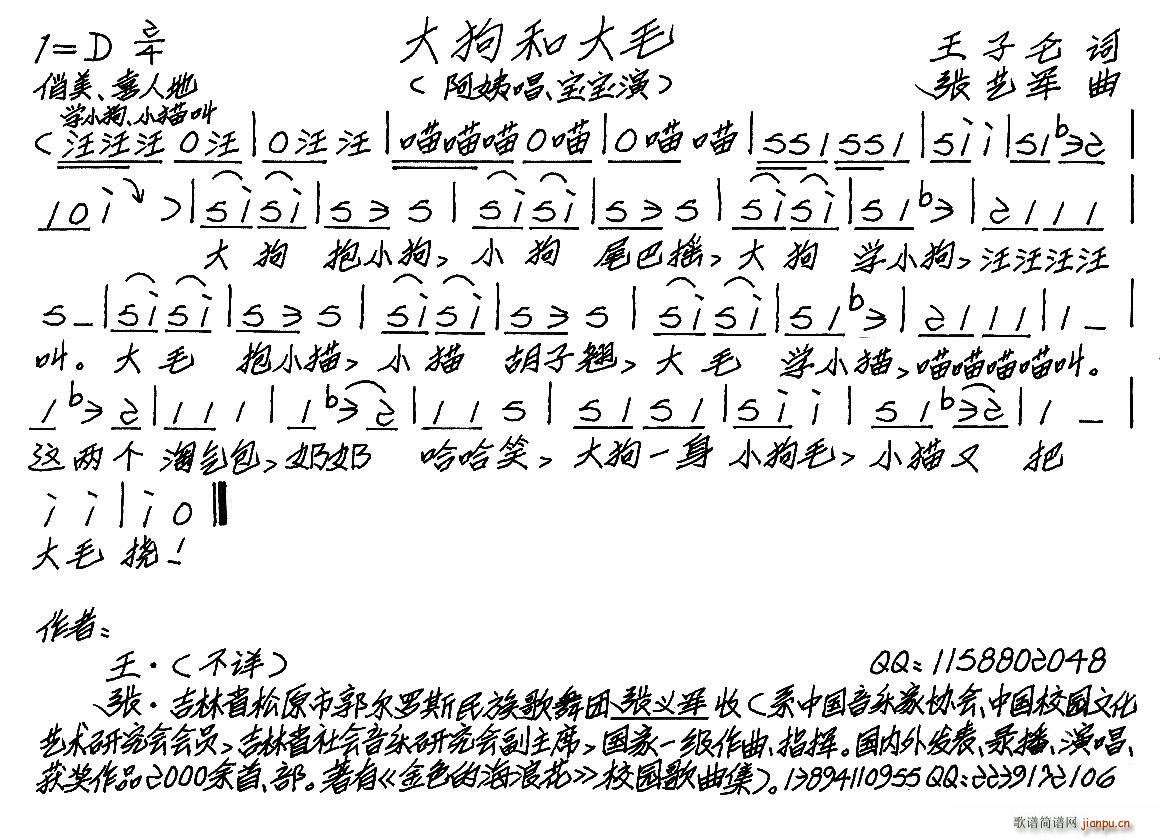 1=D 2/4
大狗和大毛
王子仑 词
俏美、喜人地
(阿姨唱、宝宝演)
张艺军 曲
学小狗、小猫叫
(汪汪汪 0汪|0汪汪|喵喵喵0喵|0喵喵|551551|5i i|51b32|
10i )|5i5i|53 5|5i5i|53 5|5i5i|51b3|2111|
大狗 抱小狗,小狗 尾巴摇,大狗 学小狗,汪汪汪汪
5-|5i5i|53 5|5i5i|53 5|5i5i|51b3|2111|1-|
叫。大毛 抱小猫,小猫 胡子翘,大毛 学小猫,喵喵喵喵叫。
1b3 2|11 1|1b32|11 5|5151|5i i|51b32|1 -|
这两个 淘气包,奶奶 哈哈笑,大狗一身 小狗毛,小猫又 把
i i|i 0‖
大毛 挠!
作者:
王·(不详) QQ:1158802048
张·吉林省松原市郭尔罗斯民族歌舞团张义军收(系中国音乐家协会、中国校园文化
艺术研究会会员,吉林省社会音乐研究会副主席,国家一级作曲、指挥。国内外发表、录播、演唱、
获奖作品2000余首、部。著有《金色的海浪花》校园歌曲集)。13894110955 QQ:2239172106
歌谱简谱网
jianpu.cn